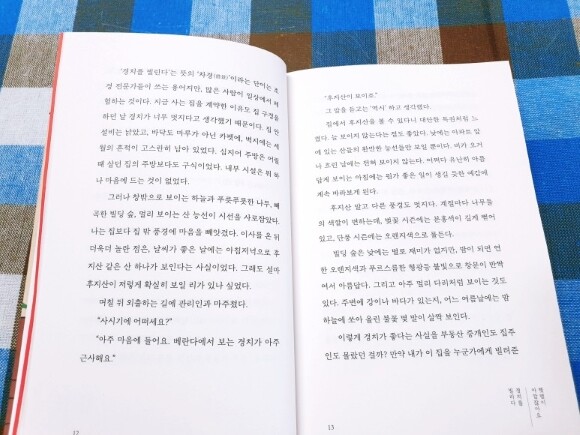 '경치를 빌린다'는 뜻의 '차경(借景)'이라는 단어는 조
경 전문가들이 쓰는 용어지만, 많은 사람이 일상에서 체
험하는 것이다. 지금 사는 집을 계약한 이유도 집 구경을
하던 날 경치가 너무 멋지다고 생각했기 때문이다. 집 안
설비는 낡았고, 바닥도 마루가 아닌 카펫에, 벽지에는 세
월의 흔적이 고스란히 남아 있었다. 심지어 주방은 어릴
때 살던 집의 주방보다도 구식이었다. 내부 시설은 뭐 하
나 마음에 드는 것이 없었다.
그러나 창밖으로 보이는 하늘과 푸릇푸릇한 나무, 빼
곡한 빌딩 숲, 멀리 보이는 산 능선이 시선을 사로잡았다.
나는 집보다 집 밖 풍경에 마음을 빼앗겼다. 이사를 온 뒤
더욱더 놀란 점은, 날씨가 좋은 날에는 아침저녁으로 후
지산 같은 산 하나가 보인다는 사실이었다. 그래도 설마
후지산이 저렇게 확실히 보일 리가 있나 싶었다.
며칠 뒤 외출하는 길에 관리인과 마주쳤다.
"사시기에 어떠세요?"
"아주 마음에 들어요. 베란다에서 보는 경치가 아주
근사해요."
12
"후지산이 보이죠."
그 말을 듣고는 '역시' 하고 생각했다.
집에서 후지산을 볼 수 있다니 대단한 특권처럼 느꼈
다. 늘 보이지 않는다는 점도 좋았다. 낮에는 아파트 앞
에 있는 산들의 완만한 능선들만 보일 뿐이다. 비가 오거
나 흐린 날에는 전혀 보이지 않는다. 어쩌다 유난히 아름
답게 보이는 아침에는 뭔가 좋은 일이 생길 듯한 예감에
계속 바라보게 된다.
후지산 말고 다른 풍경도 멋지다. 계절마다 나무들
의 색깔이 변하는데, 벚꽃 시즌에는 분홍색이 길게 뻗어
있고, 단풍 시즌에는 오렌지색으로 물든다.
빌딩 숲은 낮에는 별로 재미가 없지만, 밤이 되면 연
한 오렌지색과 푸르스름한 형광등 불빛으로 창문이 반짝
여서 아름답다. 그리고 아주 멀리 다리처럼 보이는 것도
있다. 주변에 강이나 바다가 있는지, 어느 여름날에는 밤
하늘에 쏘아 올린 불꽃 몇 발이 살짝 보인다.
이렇게 경치가 좋다는 사실을 부동산 중개인도 집주
인도 몰랐던 걸까? 만약 내가 이 집을 누군가에게 빌려준
13